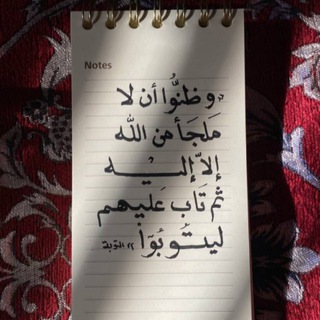 Notes
وظنُّوا أن لا
مَلجَأ من الله
إلاّ إليه
ثم تَاب عَليهم
ليتُوبُوا التوبة